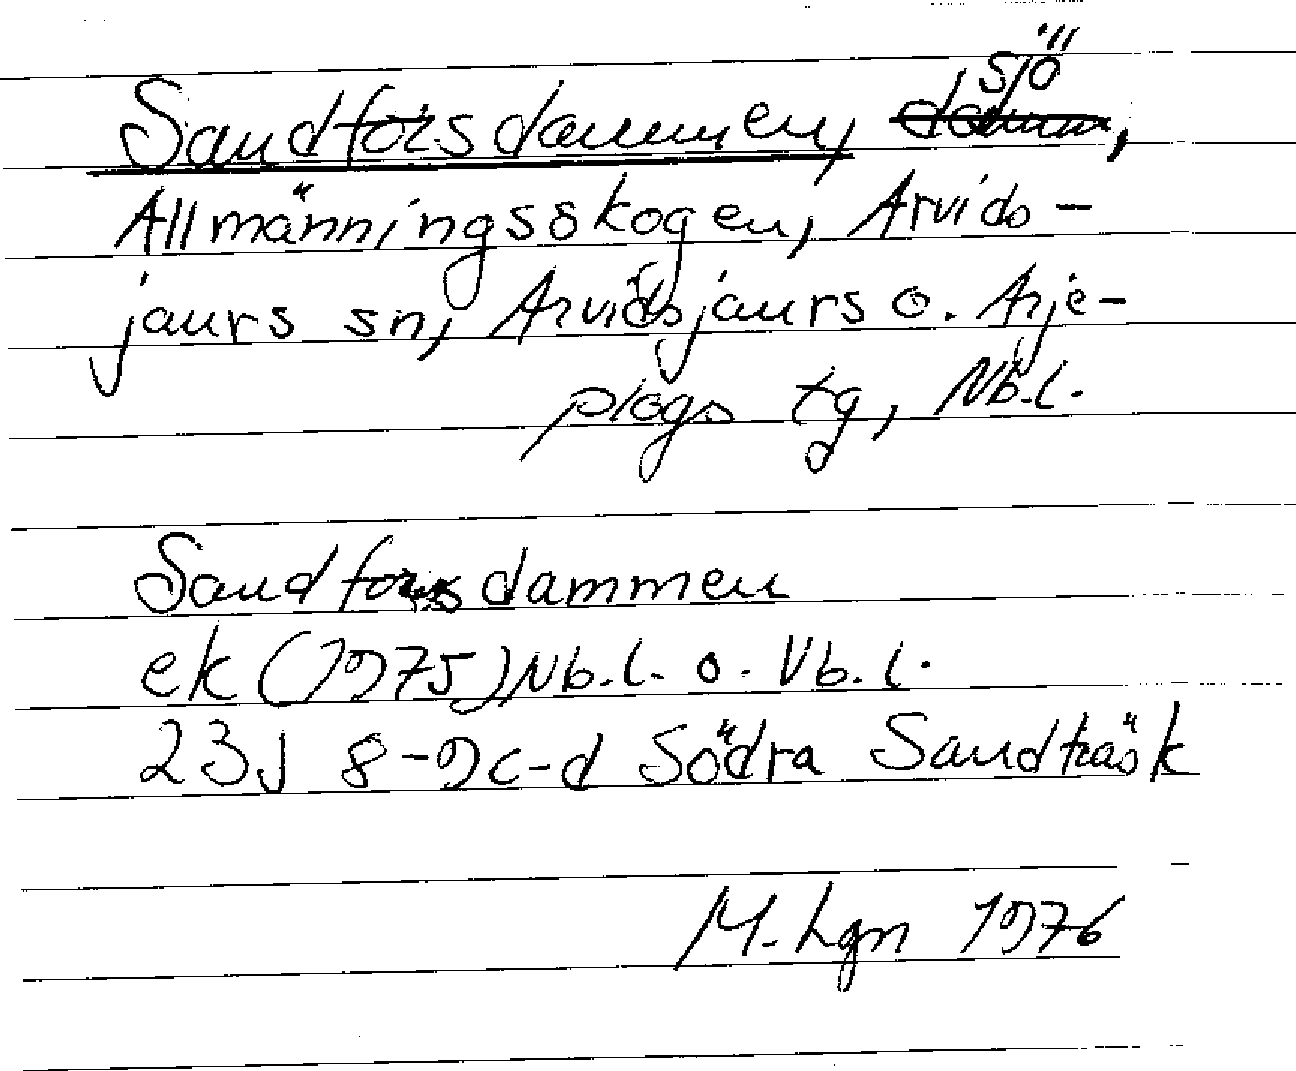 Sandforsdammen, sjö,
Allmänningsskogen, Arvids-
jaurs sn, Arvidsjaurs o. Arje-
plogs tg, Nb.l.
Sandforsdammen
ek (1975) Nb.l. o. Vb.l.
23J 8-9c-d Södra Sandträsk
M. Lgn 1976